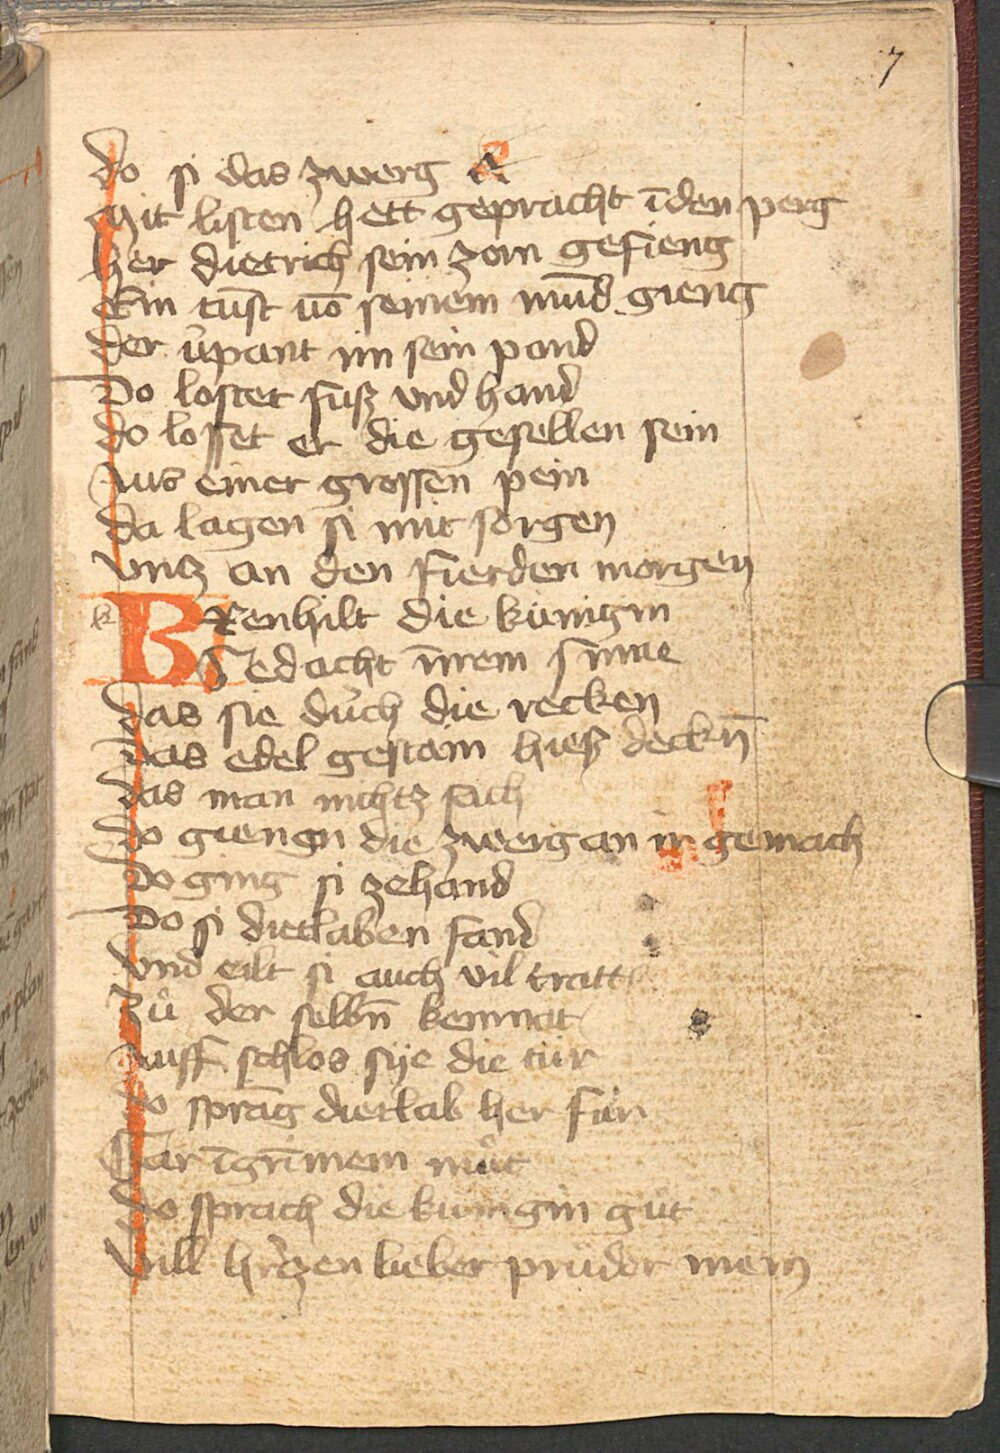 7
do si das zwerg
Mit listen hett gepracht īden perg
her dietrich sein zorn gefieng
Ein tūst vō seinem mūd gieng
der vͤpant im sein pand
Do lostet fuß vnd hand
do losset er die gesellen sein
Aus einer grossen pein
da lagen si mit sorgen
vntz an den fierden morgen
k BRenhilt die künigin
Gedacht īnrem sinne
das sie dúch die recken
das edel gestain hieß deckn̄
das man nichtz sach
do giengn die zwerg an ir gemach
Do ging si zehand
Do si dietlaben fand
vnd eilt si auch vil tratt
Zů der selbn̄ kemnat
Auff schlos sye die tür
do sprāg dietlab her für
Gar īgrīmem můt
do sprach die kunigin gůt
vill hr̓tzen lieber průder mein